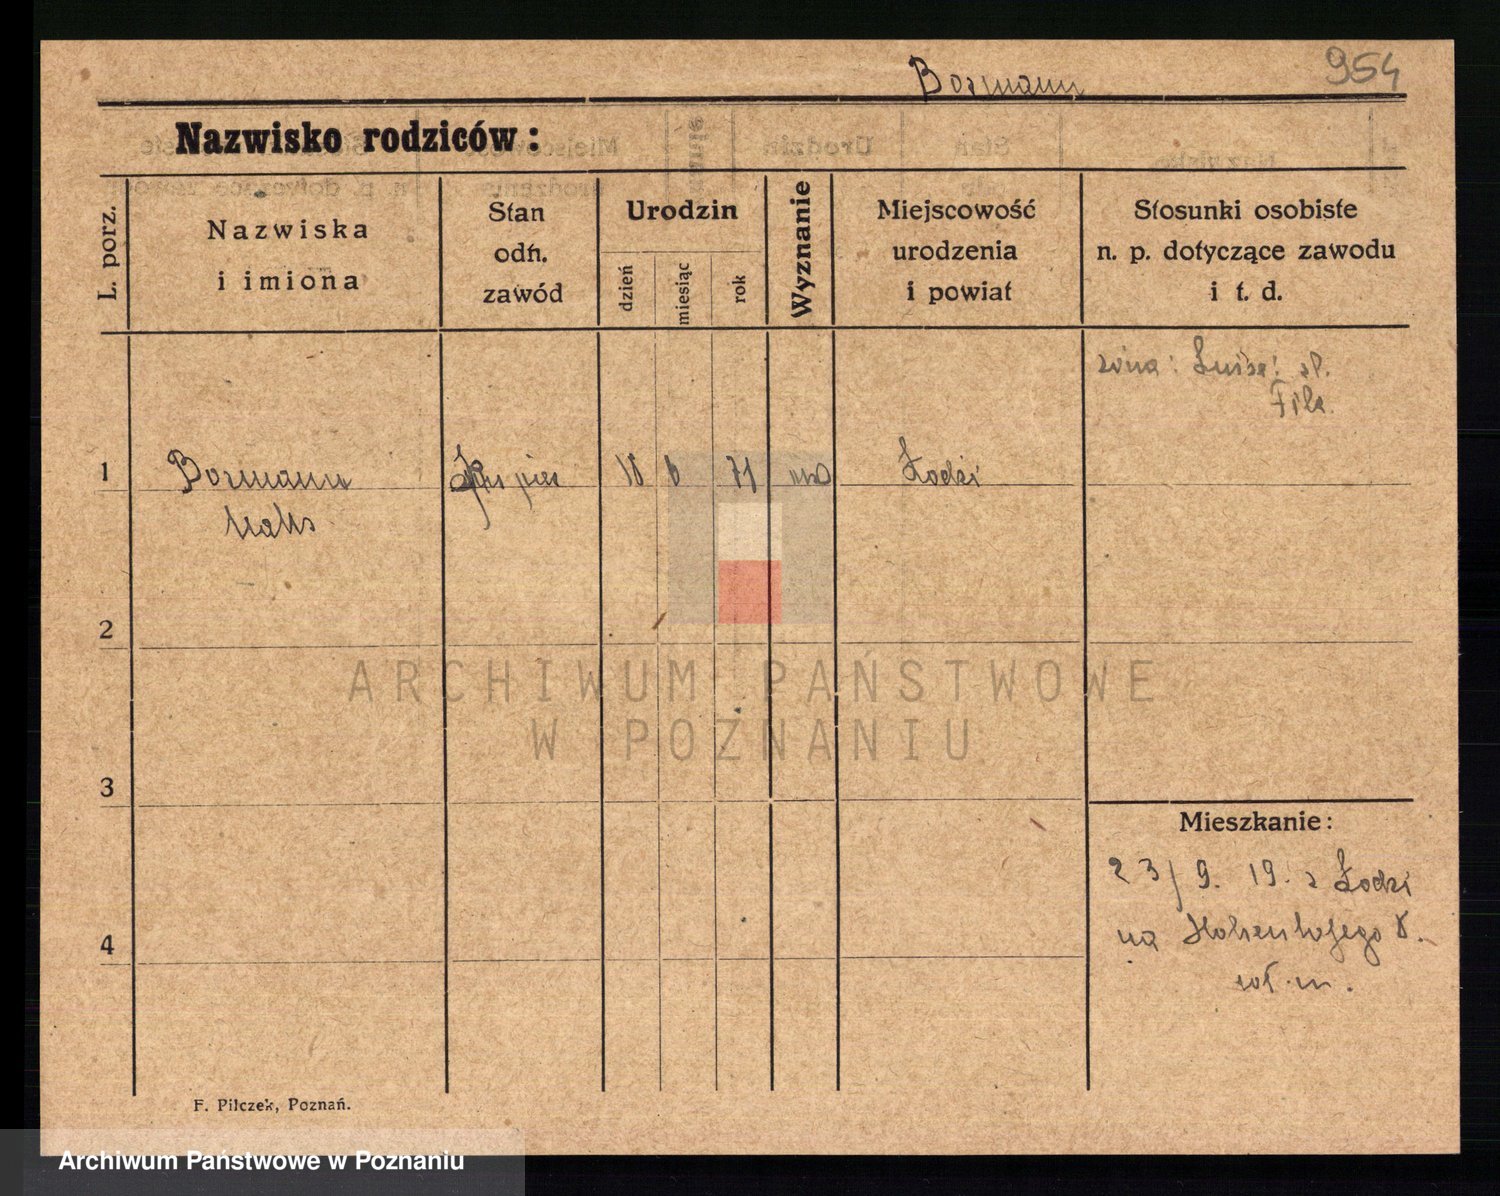 954
Bormann
Nazwisko rodziców:
L. porz.
Nazwiska
i imiona
Stan
odn.
zawód
Urodzin
dzień
miesiąc
rok
Wyznanie
Miejscowość
urodzenia
i powiat
Stosunki osobiste
n. p. dotyczące zawodu
i t. d.
żona: Luise
1
Bormann
18 6 71
Łodzi
Maks
2
ARCHIWUM PAŃSTWOWE
W POZNANIU
3
Mieszkanie:
23/9. 19. z Łodzi
4
na 8.
F. Pilczek, Poznań.
Archiwum Państwowe w Poznaniu